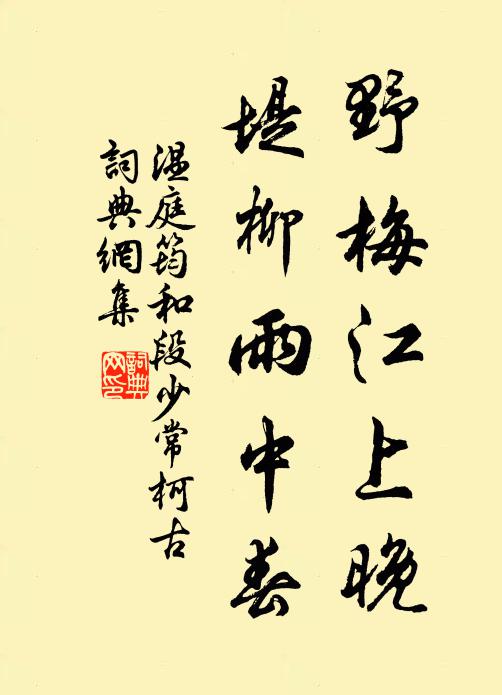 野梅江上晚
堤柳雨中春
温庭筠和段少常柯古
詞典網集
詞典网印